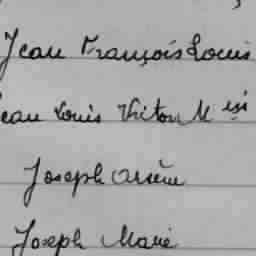 Jean François Louis
Jean Louis Victor M
Joseph Arsène
Joseph Marie